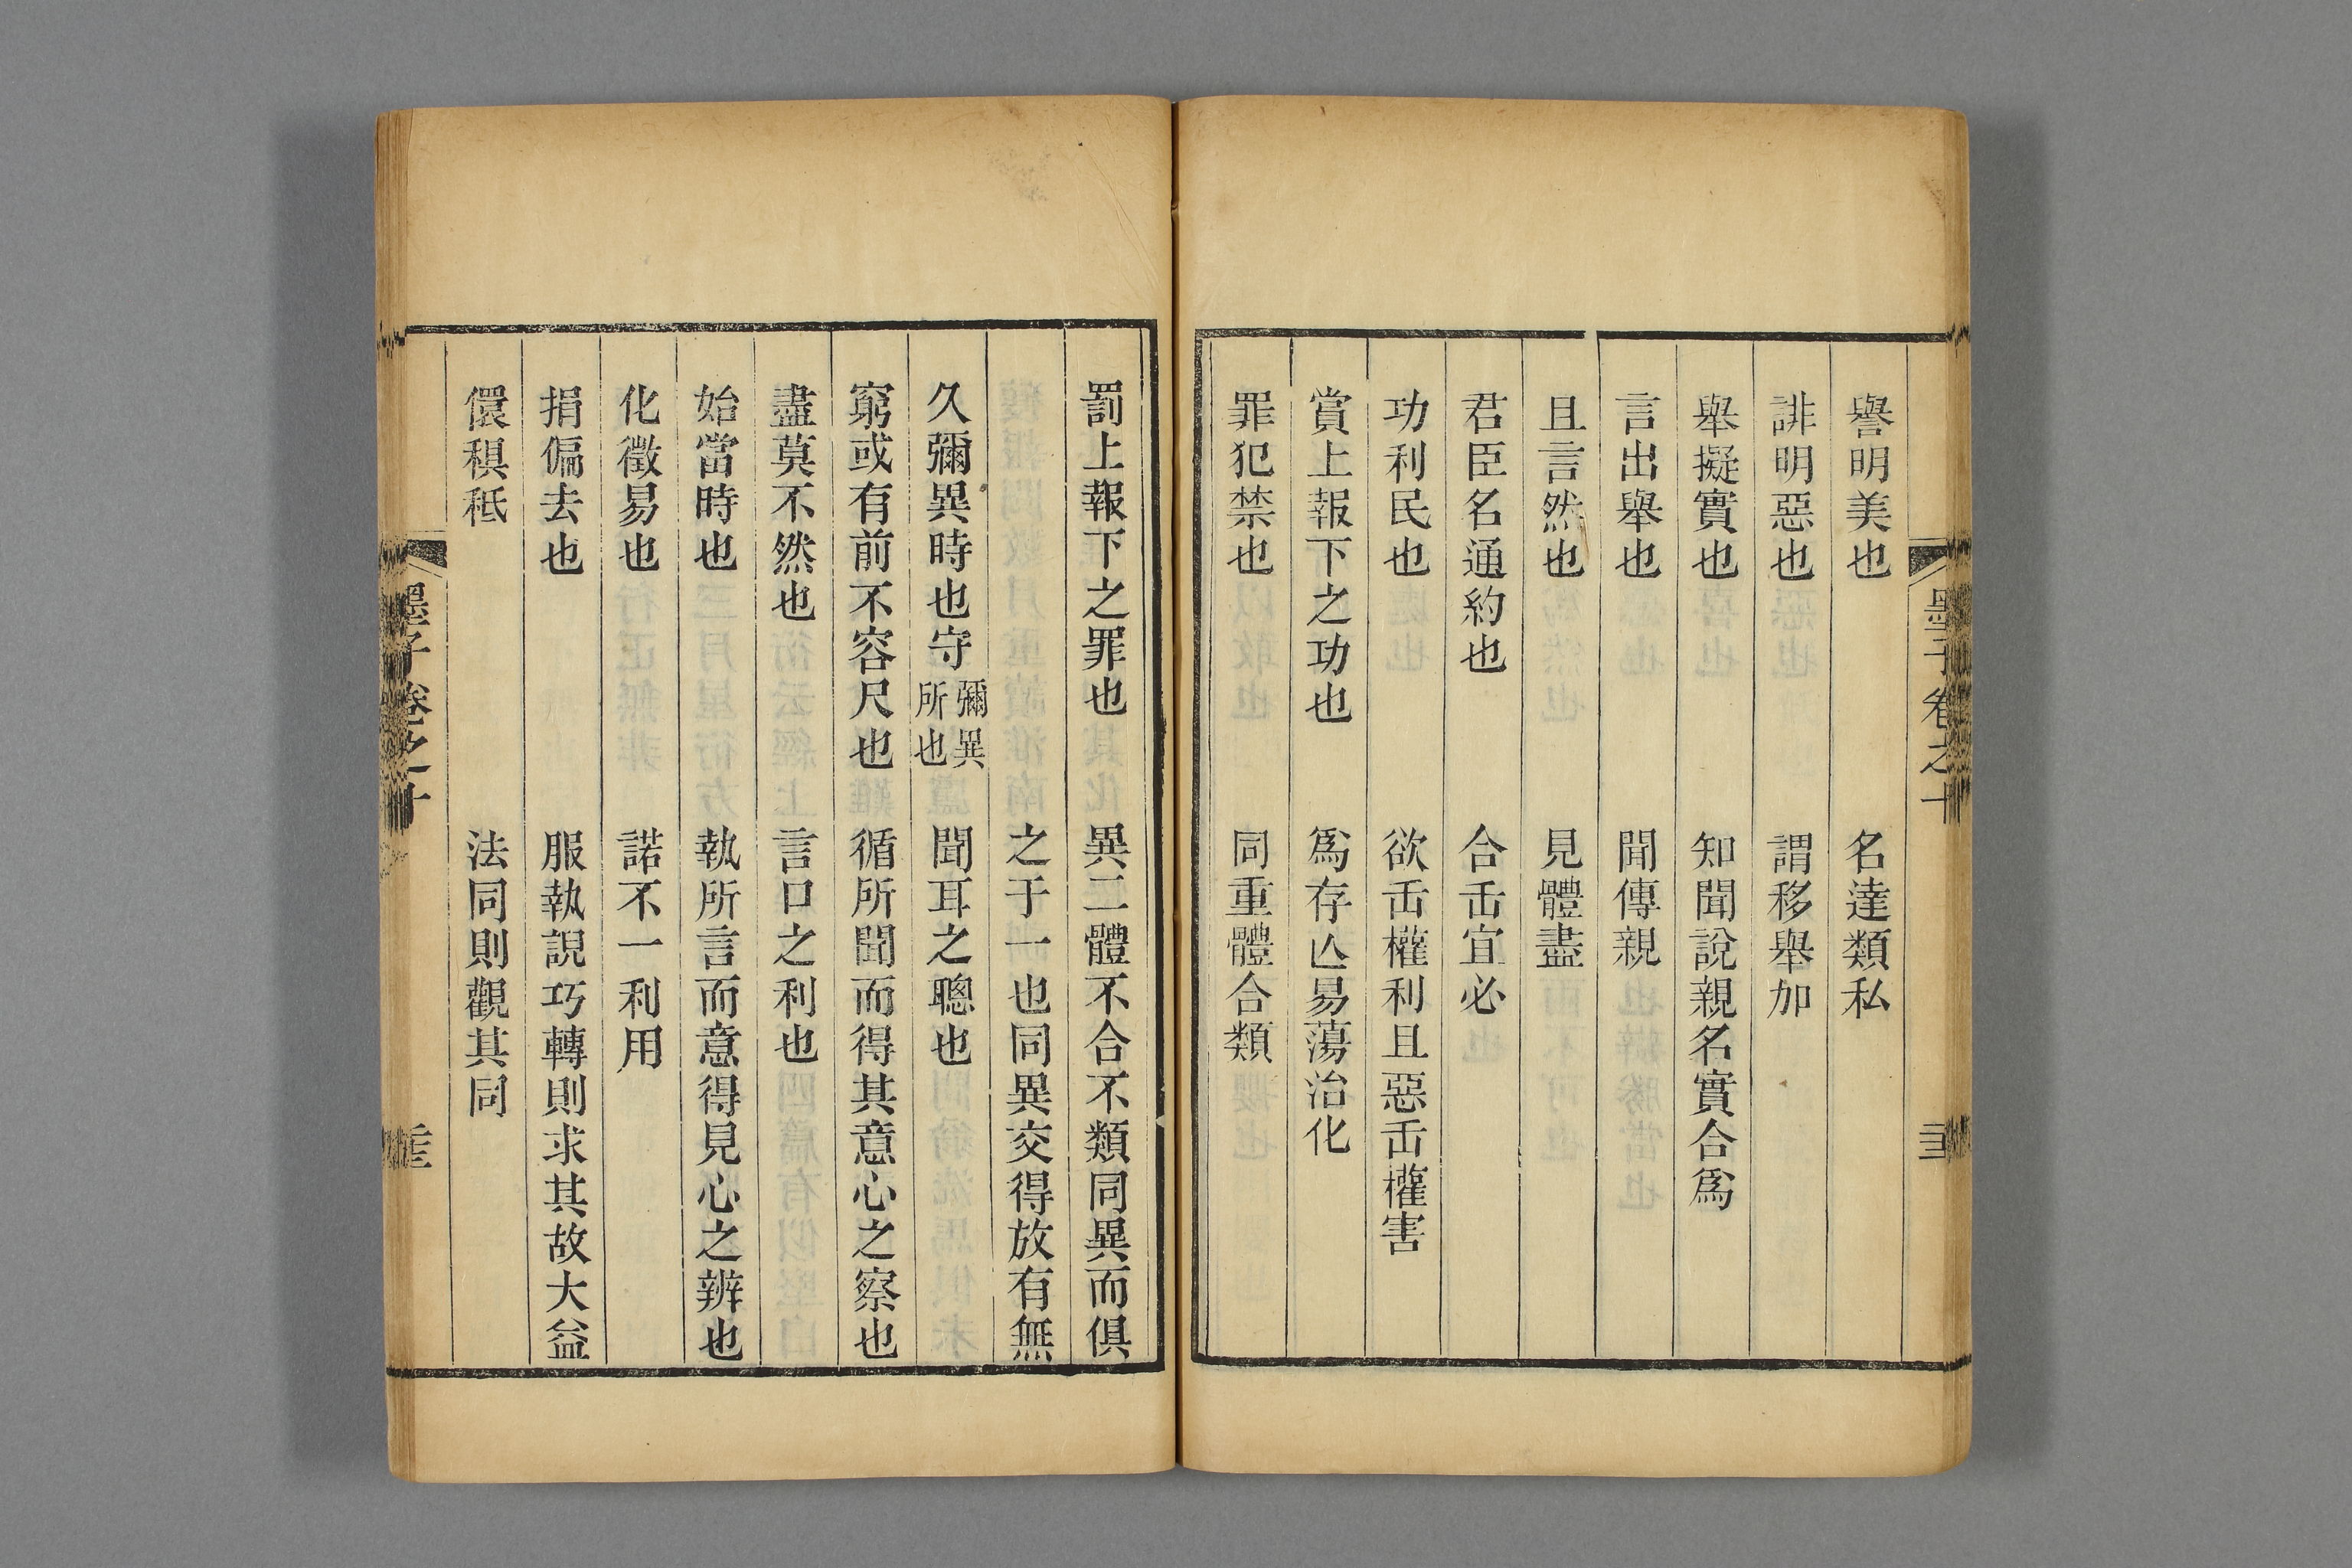 譽明美也　名達類私
誹明惡也　謂移舉加
舉擬實也　知聞說親名實合爲
言出舉也　聞傳親
且言然也　見體盡
君臣名通約也　合𠙺宜必
功利民也　欲𠙺權利且惡𠙺權害
賞上報下之功也　爲存亾易蕩治化
罪犯禁也　同重體合類
罰上報下之罪也　異二體不合不類同異而俱
之于一也同異交得放有無
久彌異時也守彌異所也　聞耳之聰也
窮或有前不容尺也　循所聞而得其意心之察也
盡莫不然也　言口之利也
始當時也　執所言而意得見心之辨也
化徵易也　諾不一利用
捐偏去也　服執說巧轉則求其故大益
儇䅲秪　法同則觀其同
墨子卷之十
墨子卷之十